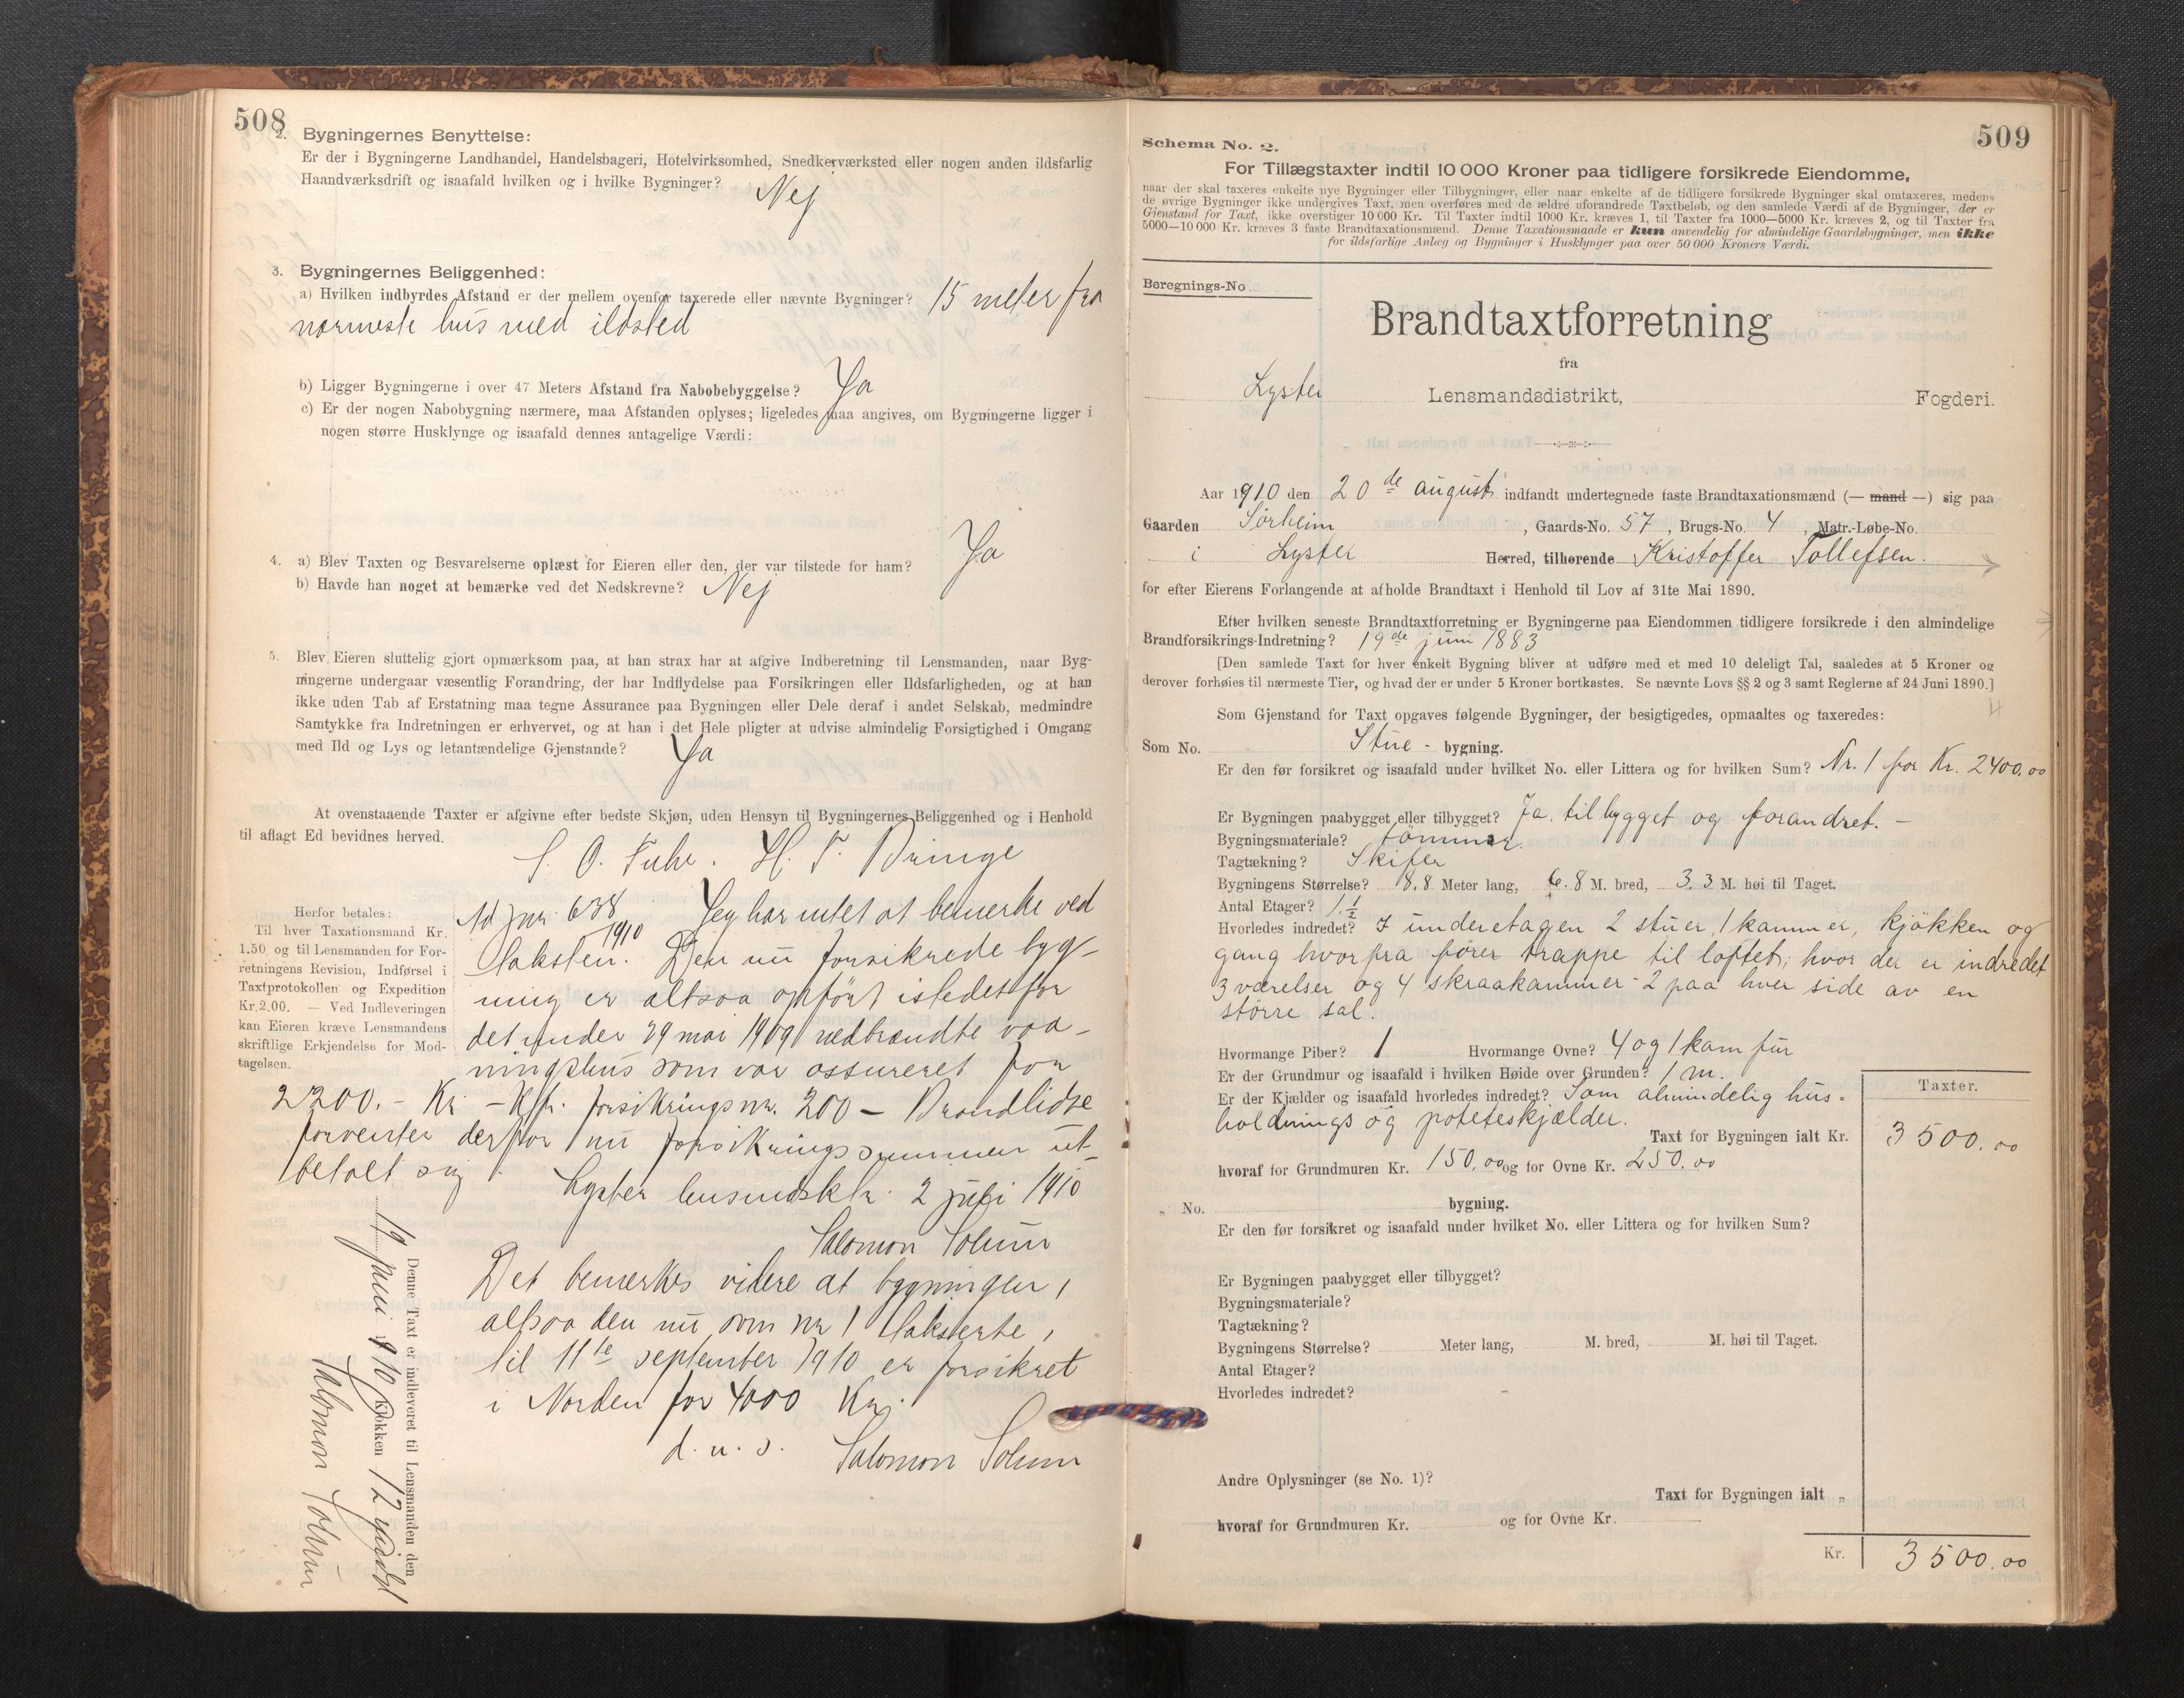 508
2. Bygningernes Benyttelse:
Er der i Bygningerne Landhandel, Handelsbageri, Hotelvirksomhed, Snedkerværksted eller nogen anden ildsfarlig
Haandværksdrift og isaafald hvilken og i hvilke Bygninger? Nej
3. Bygningernes Beliggenhed:
a) Hvilken indbyrdes Afstand er der mellem ovenfor taxerede eller nævnte Bygninger? 15 meter fra
nærmeste hus med ildsted
b) Ligger Bygningerne i over 47 Meters Afstand fra Nabobebyggelse? Ja
c) Er der nogen Nabobygning nærmere, maa Afstanden oplyses; ligeledes maa angives, om Bygningerne ligger i
nogen større Husklynge og isaafald dennes antagelige Værdi:
4. a) Blev Taxten og Besvarelserne oplæst for Eieren eller den, der var tilstede for ham? Ja
b) Havde han noget at bemærke ved det Nedskrevne? Nej
5. Blev Eieren sluttelig gjort opmærksom paa, at han strax har at afgive Indberetning til Lensmanden, naar Byg-
ningerne undergaar væsentlig Forandring, der har Indflydelse paa Forsikringen eller Ildsfarligheden, og at han
ikke uden Tab af Erstatning maa tegne Assurance paa Bygningen eller Dele deraf i andet Selskab, medmindre
Samtykke fra Indretningen er erhvervet, og at han i det Hele pligter at udvise almindelig Forsigtighed i Omgang
med Ild og Lys og letantændelige Gjenstande? Ja
At ovenstaaende Taxter er afgivne efter bedste Skjøn, uden Hensyn til Bygningernes Beliggenhed og i Henhold
til aflagt Ed bevidnes herved.
S. O. Fuhr. H. T. Bringe
Herfor betales:
Til hver Taxationsmand Kr.
1.50 og til Lensmanden for For-
retningens Revision, Indførsel i
Taxtprotokollen og Expedition
Kr. 2.00. — Ved Indleveringen
kan Eieren kræve Lensmandens
skriftlige Erkjendelse for Mod-
tagelsen.
Ad jnr. 638/1910 Jeg har intet at bemerke ved
taksten. Den nu forsikrede byg-
ning er altsaa opført istedetfor
det under 29 mai 1909 nedbrændte vaa-
ningshus som var assureret for
2200.- Kr. - Kfr. forsikringsnr. 200 - Brandlidte
forventer derfor nu forsikringssummen ut-
betalt sig.
Lyster lensmdsktr. 2 juli 1910
Salomon Solum
Det bemerkes videre at bygningen,
altsaa den nu som nr 1 takserte,
til 11te september 1910 er forsikret
i Norden for 4000 Kr.
d. u. s. Salomon Solum
Denne Taxt er indleveret til Lensmanden den
19 juni 1910 Klokken 12 middag
Salomon Solum
509
Schema No. 2.
For Tillægstaxter indtil 10 000 Kroner paa tidligere forsikrede Eiendomme,
naar der skal taxeres enkelte nye Bygninger eller Tilbygninger, eller naar enkelte af de tidligere forsikrede Bygninger skal omtaxeres, medens
de øvrige Bygninger ikke undergives Taxt, men overføres med de ældre uforandrede Taxtbeløb, og den samlede Værdi af de Bygninger, der er
Gjenstand for Taxt, ikke overstiger 10 000 Kr. Til Taxter indtil 1000 Kr. kræves 1, til Taxter fra 1000—5000 Kr. kræves 2, og til Taxter fra
5000—10 000 Kr. kræves 3 faste Brandtaxationsmænd. Denne Taxationsmaade er kun anvendelig for almindelige Gaardsbygninger, men ikke
for ildsfarlige Anlæg og Bygninger i Husklynger paa over 50 000 Kroners Værdi.
Beregnings-No
Brandtaxtforretning
fra
Lyster Lensmandsdistrikt, Fogderi.
Aar 1910 den 20de august indfandt undertegnede faste Brandtaxationsmænd (— mand —) sig paa
Gaarden Sørheim, Gaards-No. 57, Brugs-No. 4, Matr.-Løbe-No.
i Lyster Herred, tilhørende Kristoffer Tollefsen.
for efter Eierens Forlangende at afholde Brandtaxt i Henhold til Lov af 31te Mai 1890.
Efter hvilken seneste Brandtaxtforretning er Bygningerne paa Eiendommen tidligere forsikrede i den almindelige
Brandforsikrings-Indretning? 19de juni 1883
[Den samlede Taxt for hver enkelt Bygning bliver at udføre med et med 10 deleligt Tal, saaledes at 5 Kroner og
derover forhøies til nærmeste Tier, og hvad der er under 5 Kroner bortkastes. Se nævnte Lovs §§ 2 og 3 samt Reglerne af 24 Juni 1890.]
Som Gjenstand for Taxt opgaves følgende Bygninger, der besigtigedes, opmaaltes og taxeredes:
Som No. Stue - bygning.
Er den før forsikret og isaafald under hvilket No. eller Littera og for hvilken Sum? Nr. 1 for Kr. 2400.00
Er Bygningen paabygget eller tilbygget? Ja, tilbygget og forandret. -
Bygningsmateriale? tømmer.
Tagtækning? Skifer
Bygningens Størrelse? 8.8 Meter lang, 6.8 M. bred, 3.3 M. høi til Taget.
Antal Etager? 1 1/2
Hvorledes indredet? I underetagen 2 stuer, 1 kammer, kjøkken og
gang hvorfra fører trappe til loftet; hvor der er indredet
3 værelser og 4 skraakammer - 2 paa hver side av en
større sal.
Hvormange Piber? 1 Hvormange Ovne? 4 og 1 komfür
Er der Grundmur og isaafald i hvilken Høide over Grunden? 1 m.
Er der Kjælder og isaafald hvorledes indredet? Som almindelig hus-
holdnings og poteteskjælder.
Taxter.
Taxt for Bygningen ialt Kr. 3500.00
hvoraf for Grundmuren Kr. 150.00 og for Ovne Kr. 250.00
„ No. bygning.
Er den før forsikret og isaafald under hvilket No. eller Littera og for hvilken Sum?
Er Bygningen paabygget eller tilbygget?
Bygningsmateriale?
Tagtækning?
Bygningens Størrelse? Meter lang, M. bred, M. høi til Taget.
Antal Etager?
Hvorledes indredet?
Andre Oplysninger (se No. 1)?
Taxt for Bygningen ialt „
hvoraf for Grundmuren Kr. og for Ovne Kr.
Kr. 3500.00